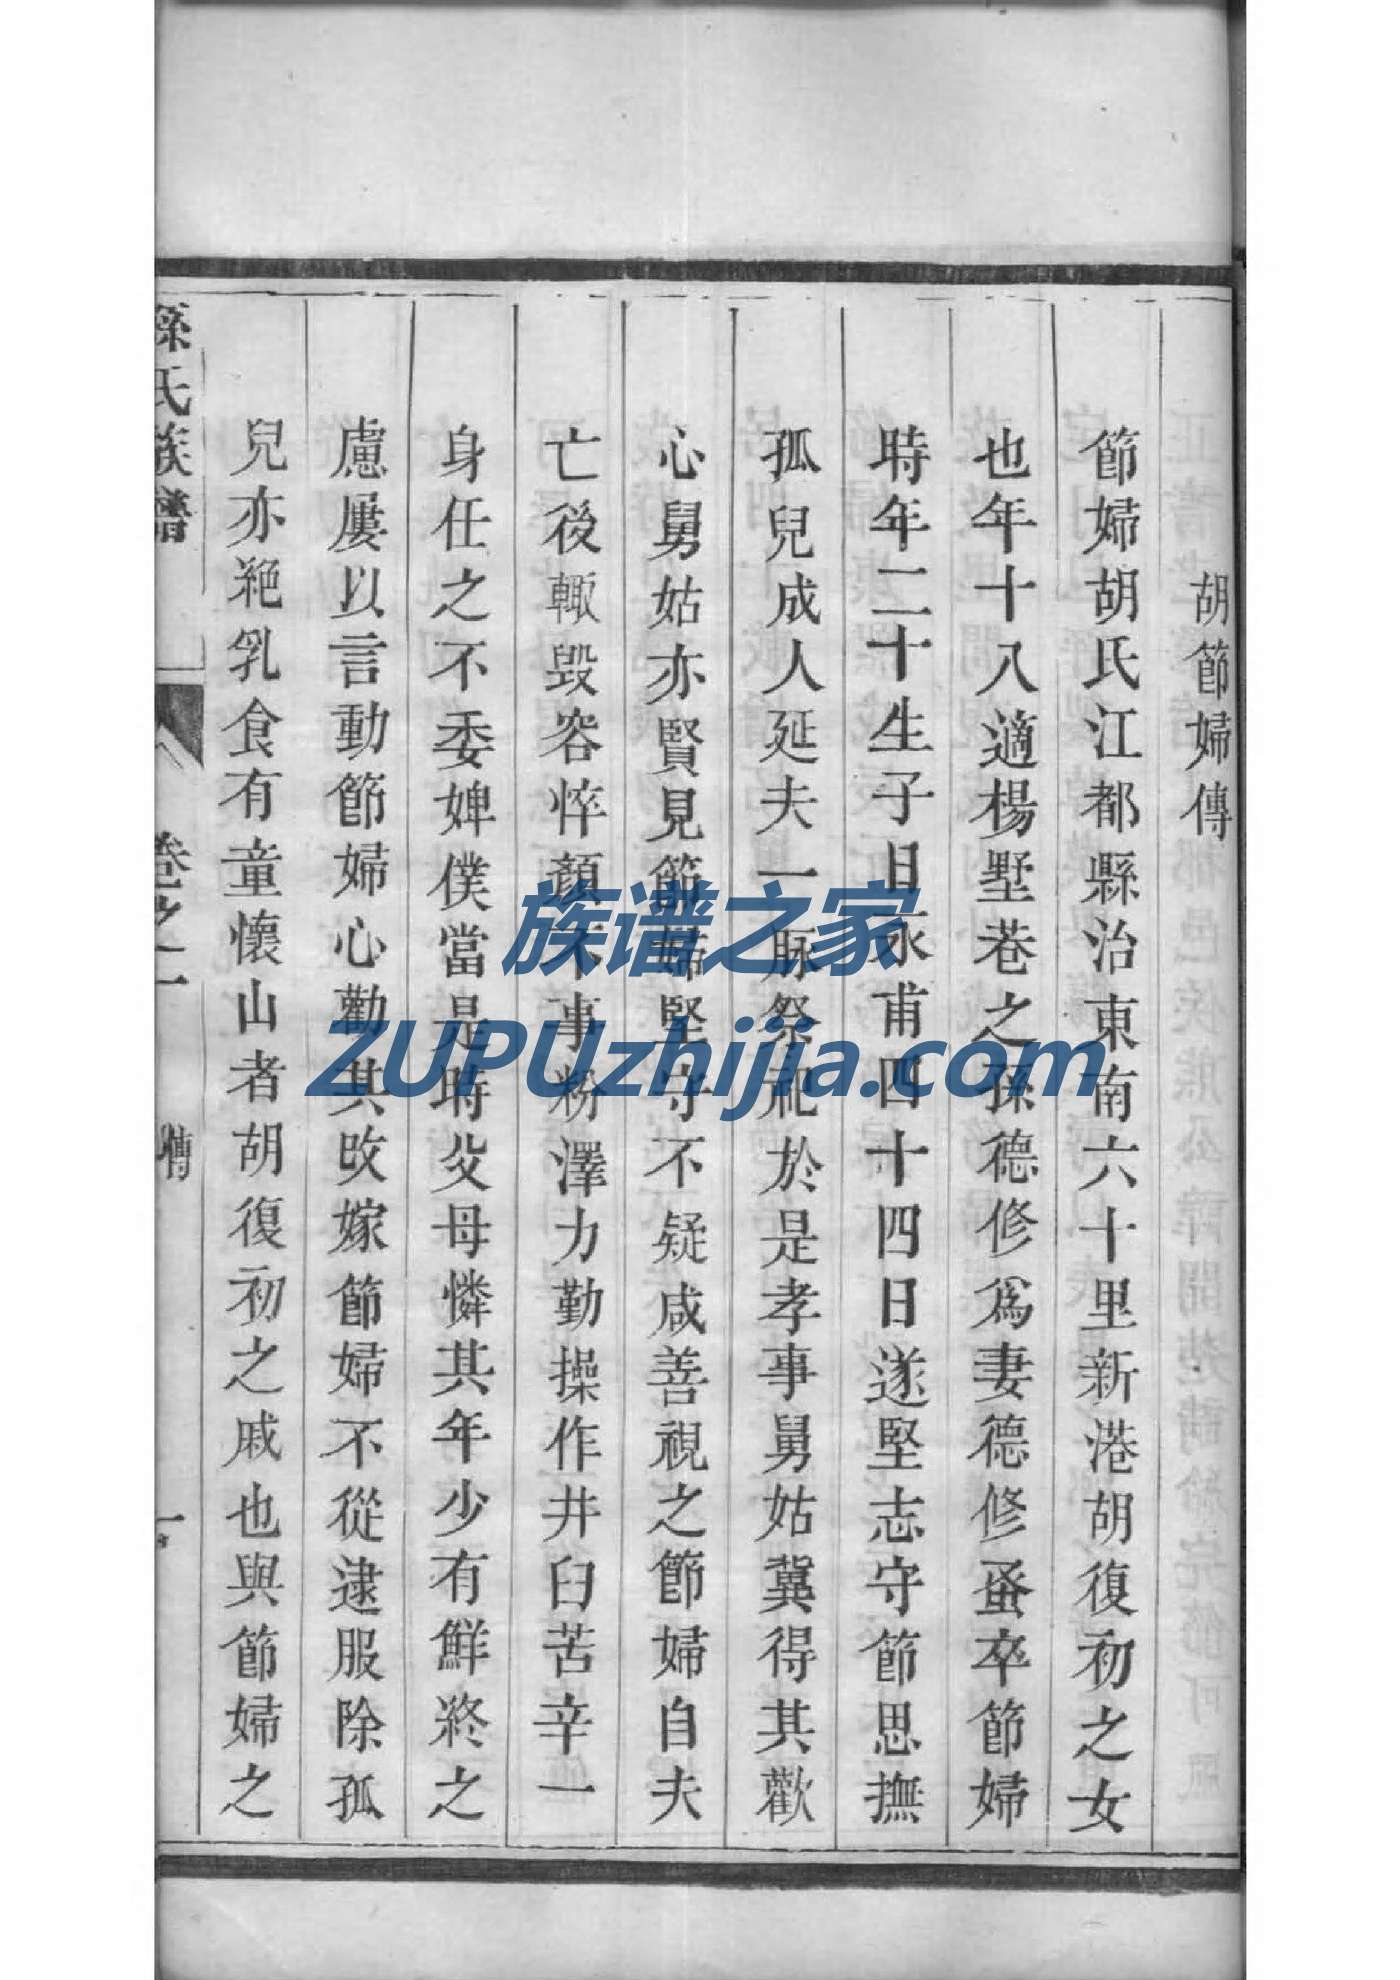 胡節婦傳
節婦胡氏江都縣治東南六十里新港胡復初之女
也年十八適楊墅巷之孫德修爲妻德修蚤卒節婦
時年二十生子日永甫四十四日遂堅志守節思撫
孤兒成人延夫一脉祭祀於是孝事舅姑冀得其歡
心舅姑亦賢見節婦堅守不疑咸善視之節婦自夫
亡後輙毀容悴顏不事粉澤力勤操作井臼苦辛一
身任之不委婢僕當是時父母憐其年少有鮮終之
慮屢以言動節婦心勸其改嫁節婦不從逮服除孤
兒亦絕乳食有童懷山者胡復初之戚也與節婦之
孫氏族譜
卷之一
傳
族谱之家
ZUPUzhijia.com